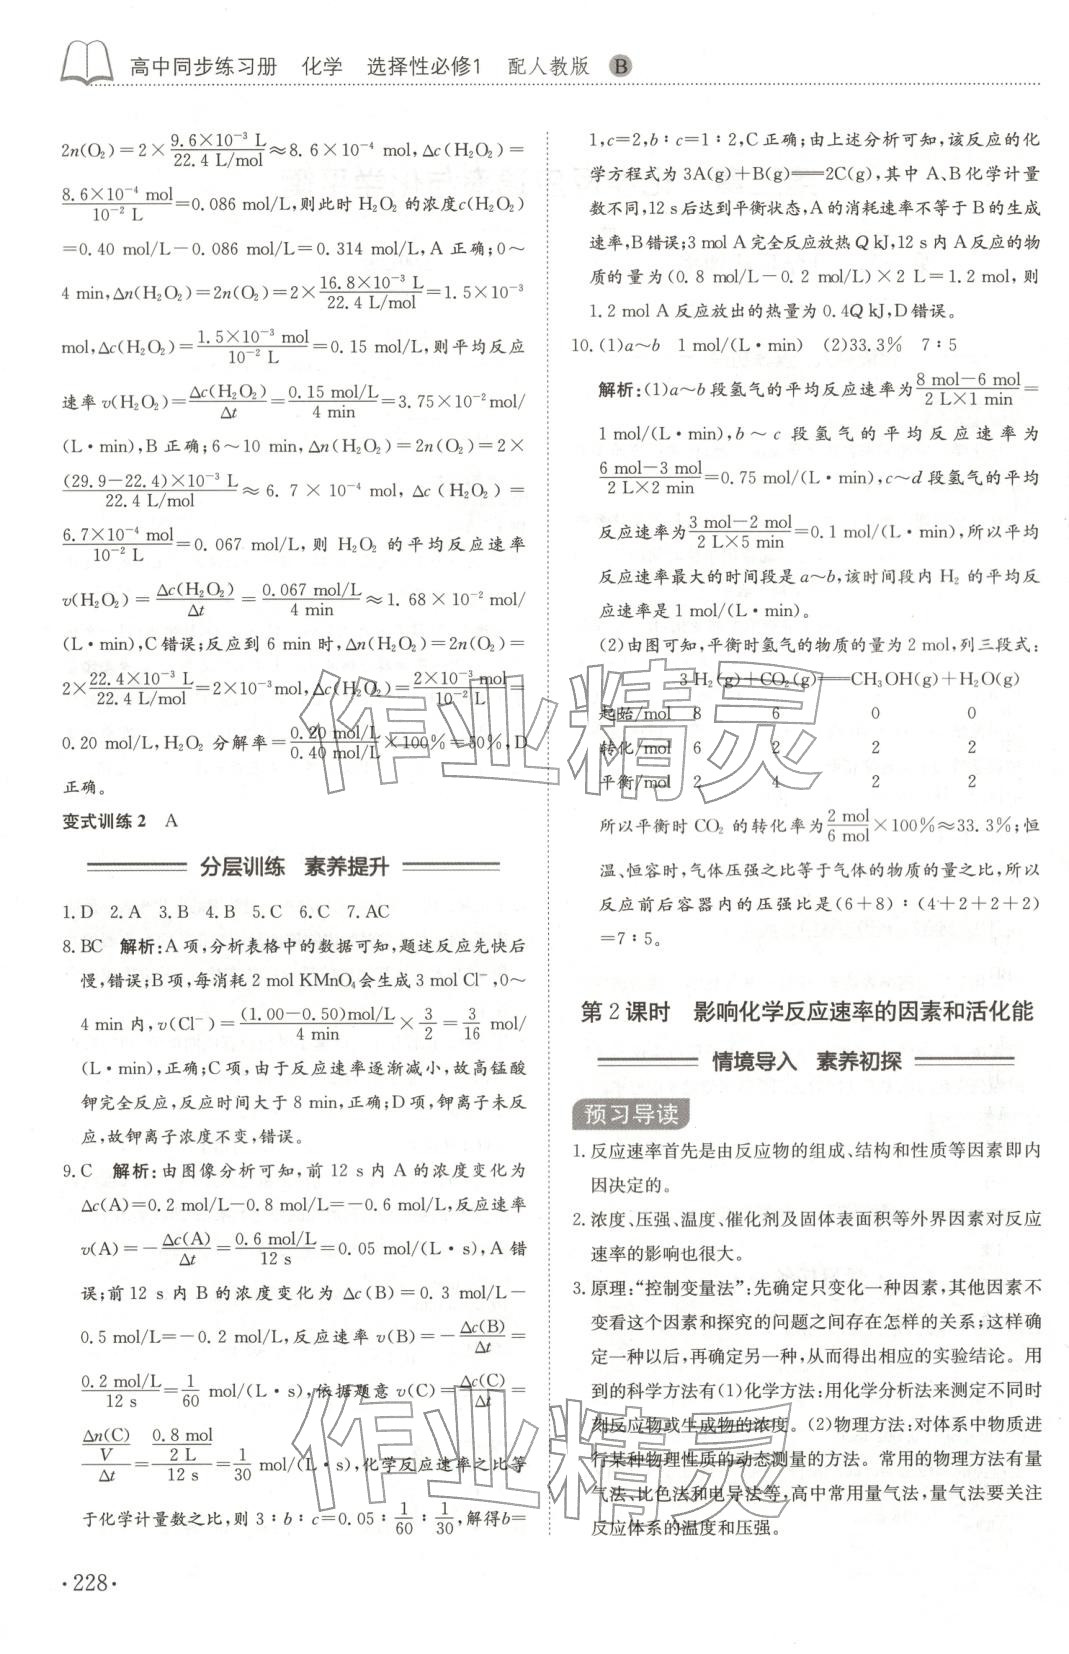 高中同步练习册 化学 选择性必修1 配人教版 B
2n(O₂)=2×(9.6×10⁻³ L)/(22.4 L/mol)≈8.6×10⁻⁴ mol,Δc(H₂O₂)=
(8.6×10⁻⁴ mol)/(10⁻² L)=0.086 mol/L,则此时 H₂O₂ 的浓度c(H₂O₂)
=0.40 mol/L-0.086 mol/L=0.314 mol/L,A 正确;0～
4 min,Δn(H₂O₂)=2n(O₂)=2×(16.8×10⁻³ L)/(22.4 L/mol)=1.5×10⁻³
mol,Δc(H₂O₂)=(1.5×10⁻³ mol)/(10⁻² L)=0.15 mol/L,则平均反应
速率 v(H₂O₂)=Δc(H₂O₂)/Δt=(0.15 mol/L)/(4 min)=3.75×10⁻² mol/
(L·min),B 正确;6～10 min,Δn(H₂O₂)=2n(O₂)=2×
((29.9-22.4)×10⁻³ L)/(22.4 L/mol)≈6.7×10⁻⁴ mol,Δc(H₂O₂)=
(6.7×10⁻⁴ mol)/(10⁻² L)=0.067 mol/L,则 H₂O₂ 的平均反应速率
v(H₂O₂)=Δc(H₂O₂)/Δt=(0.067 mol/L)/(4 min)≈1.68×10⁻² mol/
(L·min),C错误;反应到 6 min 时,Δn(H₂O₂)=2n(O₂)=
2×(22.4×10⁻³ L)/(22.4 L/mol)=2×10⁻³ mol,Δc(H₂O₂)=(2×10⁻³ mol)/(10⁻² L)=
0.20 mol/L,H₂O₂ 分解率=(0.20 mol/L)/(0.40 mol/L)×100%=50%,D
正确。
变式训练2 A
分层训练 素养提升
1.D 2.A 3.B 4.B 5.C 6.C 7.AC
8.BC 解析:A 项,分析表格中的数据可知,题述反应先快后
慢,错误;B项,每消耗 2 mol KMnO₄会生成 3 mol Cl⁻,0～
4 min 内,v(Cl⁻)=((1.00-0.50)mol/L)/(4 min)×3/2=3/16 mol/
(L·min),正确;C项,由于反应速率逐渐减小,故高锰酸
钾完全反应,反应时间大于 8 min,正确;D项,钾离子未反
应,故钾离子浓度不变,错误。
9.C 解析:由图像分析可知,前 12 s 内 A 的浓度变化为
Δc(A)=0.2 mol/L-0.8 mol/L=-0.6 mol/L,反应速率
v(A)=-Δc(A)/Δt=(0.6 mol/L)/(12 s)=0.05 mol/(L·s),A 错
误;前 12 s 内 B 的浓度变化为 Δc(B)=0.3 mol/L-
0.5 mol/L=-0.2 mol/L,反应速率 v(B)=-Δc(B)/Δt=
(0.2 mol/L)/(12 s)=1/60 mol/(L·s),依据题意 v(C)=Δc(C)/Δt=
(Δn(C)/V)/Δt=(0.8 mol/2 L)/(12 s)=1/30 mol/(L·s),化学反应速率之比等
于化学计量数之比,则 3∶b∶c=0.05∶1/60∶1/30,解得b=
1,c=2,b∶c=1∶2,C 正确;由上述分析可知,该反应的化
学方程式为 3A(g)+B(g)══2C(g),其中 A、B化学计量
数不同,12 s后达到平衡状态,A的消耗速率不等于B的生成
速率,B错误;3 mol A完全反应放热Q kJ,12 s内A反应的物
质的量为(0.8 mol/L-0.2 mol/L)×2 L=1.2 mol,则
1.2 mol A 反应放出的热量为 0.4Q kJ,D错误。
10.(1)a～b 1 mol/(L·min) (2)33.3% 7∶5
解析:(1)a～b段氢气的平均反应速率为(8 mol-6 mol)/(2 L×1 min)=
1 mol/(L·min),b～c 段氢气的平均反应速率为
(6 mol-3 mol)/(2 L×2 min)=0.75 mol/(L·min),c～d段氢气的平均
反应速率为(3 mol-2 mol)/(2 L×5 min)=0.1 mol/(L·min),所以平均
反应速率最大的时间段是 a～b,该时间段内 H₂ 的平均反
应速率是 1 mol/(L·min)。
(2)由图可知,平衡时氢气的物质的量为2 mol,列三段式:
3H₂(g)+CO₂(g)══CH₃OH(g)+H₂O(g)
起始/mol 8 6 0 0
转化/mol 6 2 2 2
平衡/mol 2 4 2 2
所以平衡时 CO₂ 的转化率为(2 mol)/(6 mol)×100%≈33.3%;恒
温、恒容时,气体压强之比等于气体的物质的量之比,所以
反应前后容器内的压强比是(6+8)∶(4+2+2+2)
=7∶5。
第2课时 影响化学反应速率的因素和活化能
情境导入 素养初探
预习导读
1.反应速率首先是由反应物的组成、结构和性质等因素即内
因决定的。
2.浓度、压强、温度、催化剂及固体表面积等外界因素对反应
速率的影响也很大。
3.原理:“控制变量法”:先确定只变化一种因素,其他因素不
变看这个因素和探究的问题之间存在怎样的关系;这样确
定一种以后,再确定另一种,从而得出相应的实验结论。用
到的科学方法有(1)化学方法:用化学分析法来测定不同时
刻反应物或生成物的浓度。(2)物理方法:对体系中物质进
行某种物理性质的动态测量的方法。常用的物理方法有量
气法、比色法和电导法等,高中常用量气法,量气法要关注
反应体系的温度和压强。
作业精灵
作业精灵
·228·